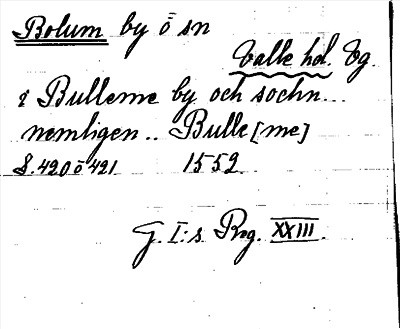 Bolum by o sn
Valle hd. Vg.
i Bulleme by och sochn...
nemligen .. Bulle [me]
S. 420 o 421 1552
G. I:s Reg. XXIII